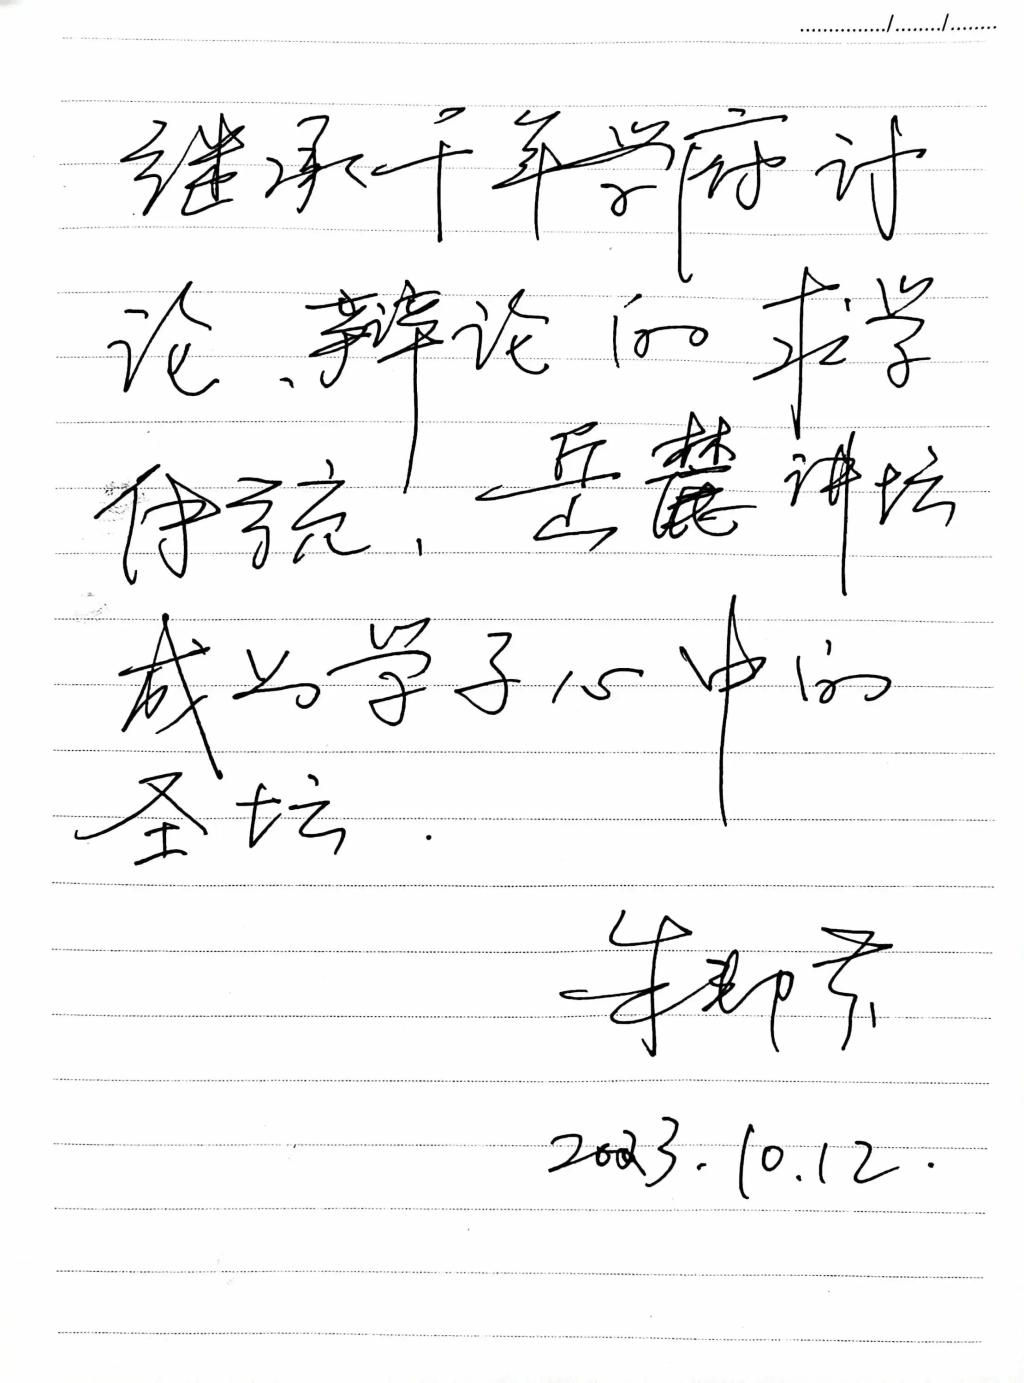 继承千年学府讨
论、辩论的求学
传统，岳麓讲坛
成为学子心中的
圣坛.
朱
2023.10.12.